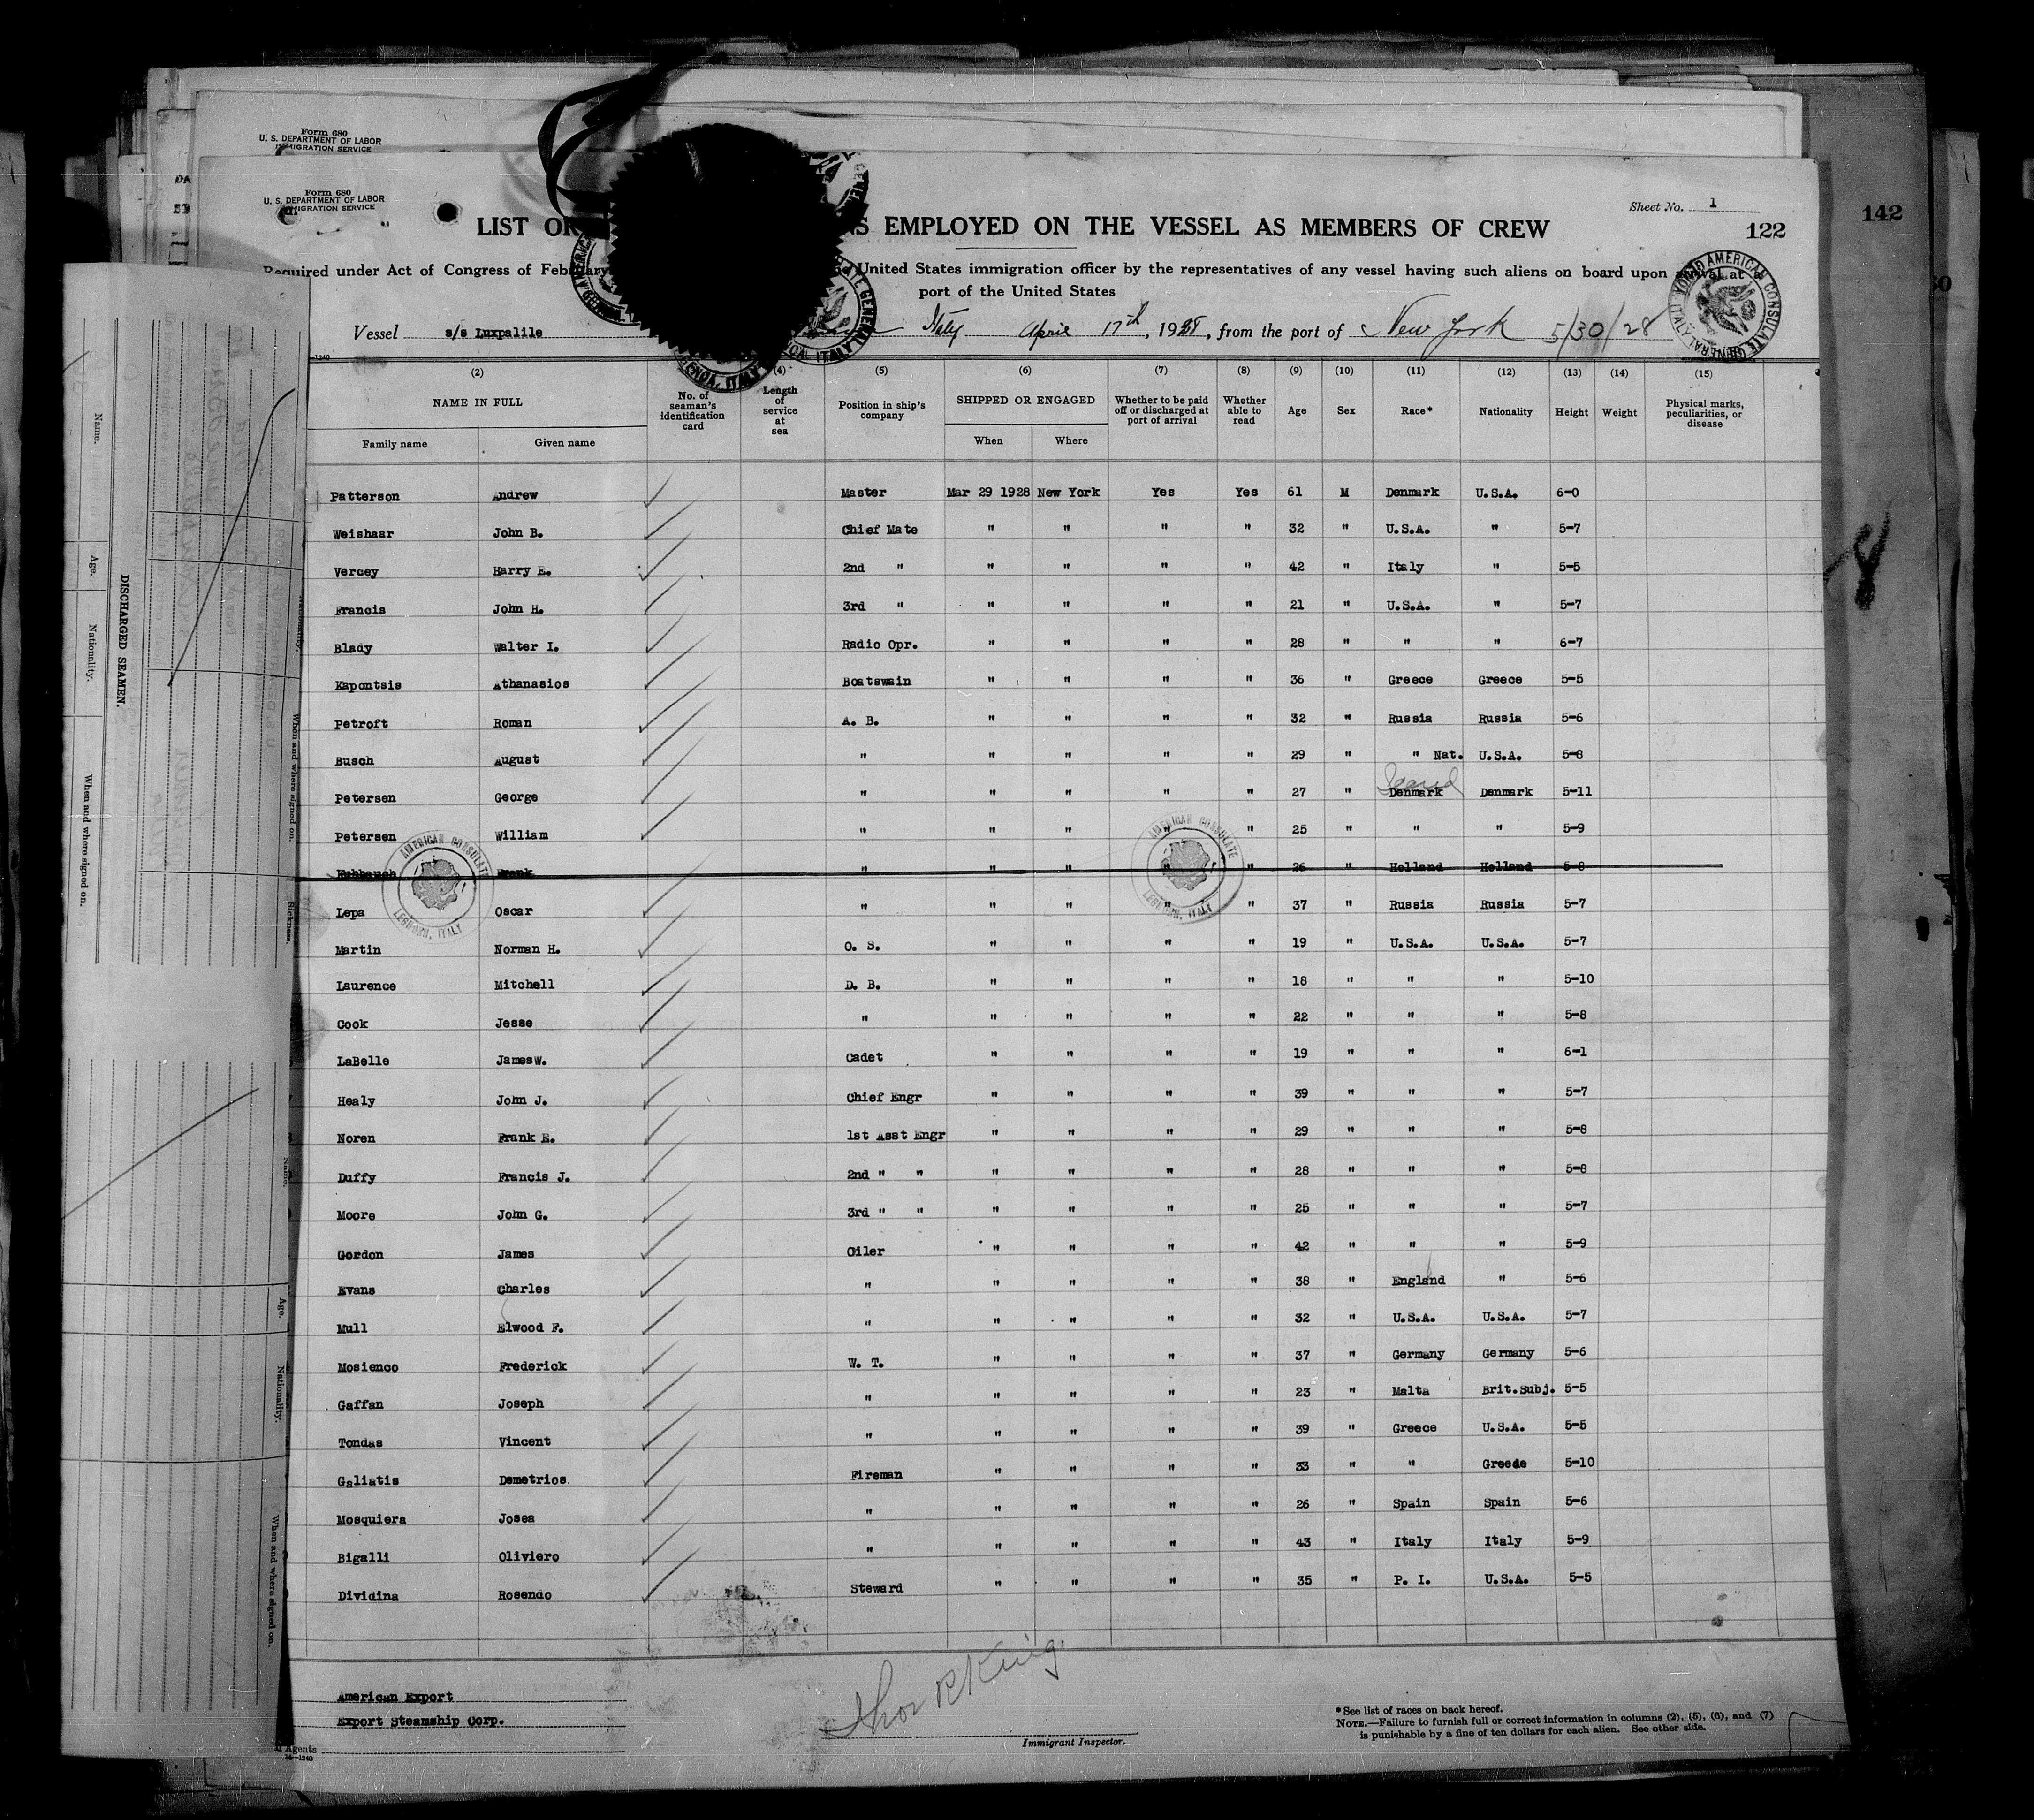 Form 680
U. S. DEPARTMENT OF LABOR
IMMIGRATION SERVICE
Form 680
U. S. DEPARTMENT OF LABOR
IMMIGRATION SERVICE
Sheet No. 1
LIST OF EMPLOYED ON THE VESSEL AS MEMBERS OF CREW
122
142
Required under Act of Congress of February United States immigration officer by the representatives of any vessel having such aliens on board upon arrival at a
port of the United States
Vessel s/s Luxpalile Italy April 17th, 1928, from the port of New York 5/30/28
(2) (4) (5) (6) (7) (8) (9) (10) (11) (12) (13) (14) (15)
NAME IN FULL No. of seaman's identification card Length of service at sea Position in ship's company SHIPPED OR ENGAGED Whether to be paid off or discharged at port of arrival Whether able to read Age Sex Race* Nationality Height Weight Physical marks, peculiarities, or disease
Family name Given name When Where
Patterson Andrew Master Mar 29 1928 New York Yes Yes 61 M Denmark U.S.A. 6-0
Weishaar John B. Chief Mate " " " " 32 " U.S.A. " 5-7
Vercey Harry E. 2nd " " " " " 42 " Italy " 5-5
Francis John H. 3rd " " " " " 21 " U.S.A. " 5-7
Blady Walter I. Radio Opr. " " " " 28 " " " 6-7
Kapontsis Athanasios Boatswain " " " " 36 " Greece Greece 5-5
Petroft Roman A. B. " " " " 32 " Russia Russia 5-6
Busch August " " " " " 29 " " Nat. U.S.A. 5-8
Petersen George " " " " " 27 " Denmark Denmark 5-11
Petersen William " " " " " 25 " " " 5-9
Frank " " " " " 26 " Holland Holland 5-8
Lepa Oscar " " " " " 37 " Russia Russia 5-7
Martin Norman H. O. S. " " " " 19 " U.S.A. U.S.A. 5-7
Laurence Mitchell D. B. " " " " 18 " " " 5-10
Cook Jesse " " " " " 22 " " " 5-8
LaBelle JamesW. Cadet " " " " 19 " " " 6-1
Healy John J. Chief Engr " " " " 39 " " " 5-7
Noren Frank E. 1st Asst Engr " " " " 29 " " " 5-8
Duffy Francis J. 2nd " " " " " " 28 " " " 5-8
Moore John G. 3rd " " " " " " 25 " " " 5-7
Gordon James Oiler " " " " 42 " " " 5-9
Evans Charles " " " " " 38 " England " 5-6
Mull Elwood F. " " " " " 32 " U.S.A. U.S.A. 5-7
Mosienco Frederick W. T. " " " " 37 " Germany Germany 5-6
Gaffan Joseph " " " " " 23 " Malta Brit.Subj. 5-5
Tondas Vincent " " " " " 39 " Greece U.S.A. 5-5
Galiatis Demetrios Fireman " " " " 33 " " Greece 5-10
Mosquiera Josea " " " " " 26 " Spain Spain 5-6
Bigalli Oliviero " " " " " 43 " Italy Italy 5-9
Dividina Rosendo Steward " " " " 35 " P. I. U.S.A. 5-5
AMERICAN CONSULATE
LEGHORN, ITALY
AMERICAN CONSULATE
LEGHORN, ITALY
AMERICAN CONSULATE GENERAL
GENOA, ITALY
American Export
Export Steamship Corp.
Agents
Immigrant Inspector.
*See list of races on back hereof.
NOTE.—Failure to furnish full or correct information in columns (2), (5), (6), and (7)
is punishable by a fine of ten dollars for each alien. See other side.
DISCHARGED SEAMEN.
Name. Age. Nationality. When and where signed on.
Nationality. When and where signed on. Sickness.
Name. Age. Nationality. When and where signed on.